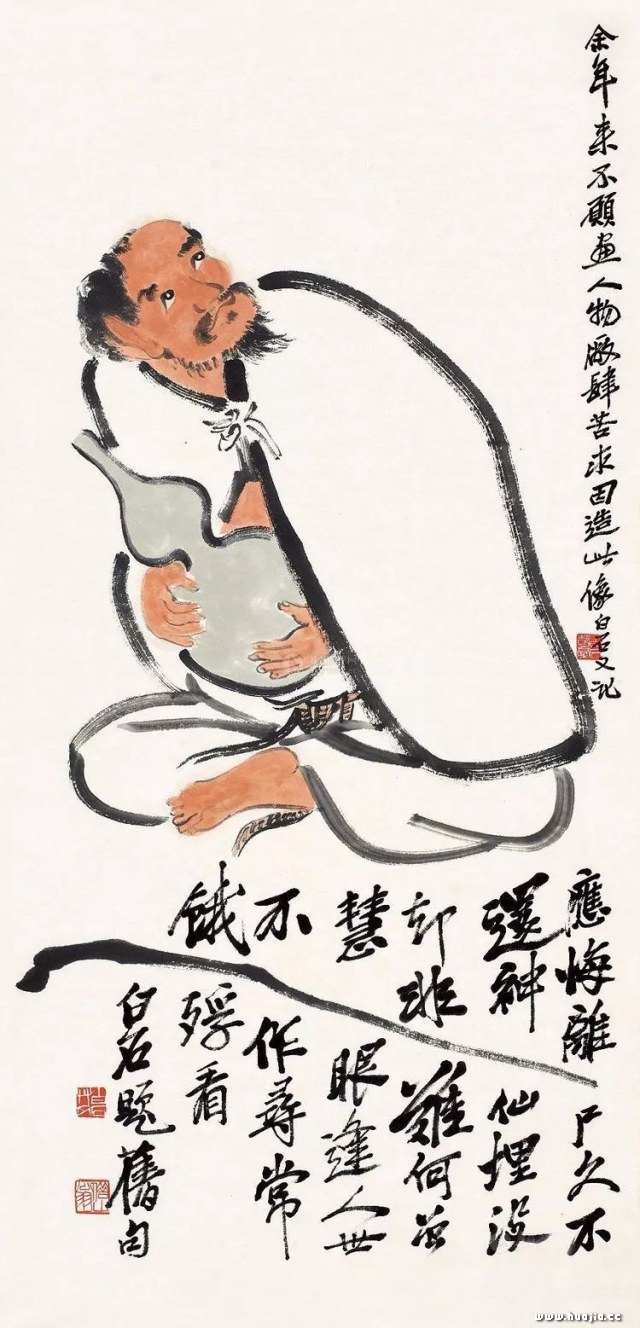 余年來不願畫人物廠肆苦求因造此像白石又記
應悔離尸久不
還神仙埋沒
却非難何曾
慧眼逢人世
不作尋常
餓殍看
白石題舊句
www.huajia.cc